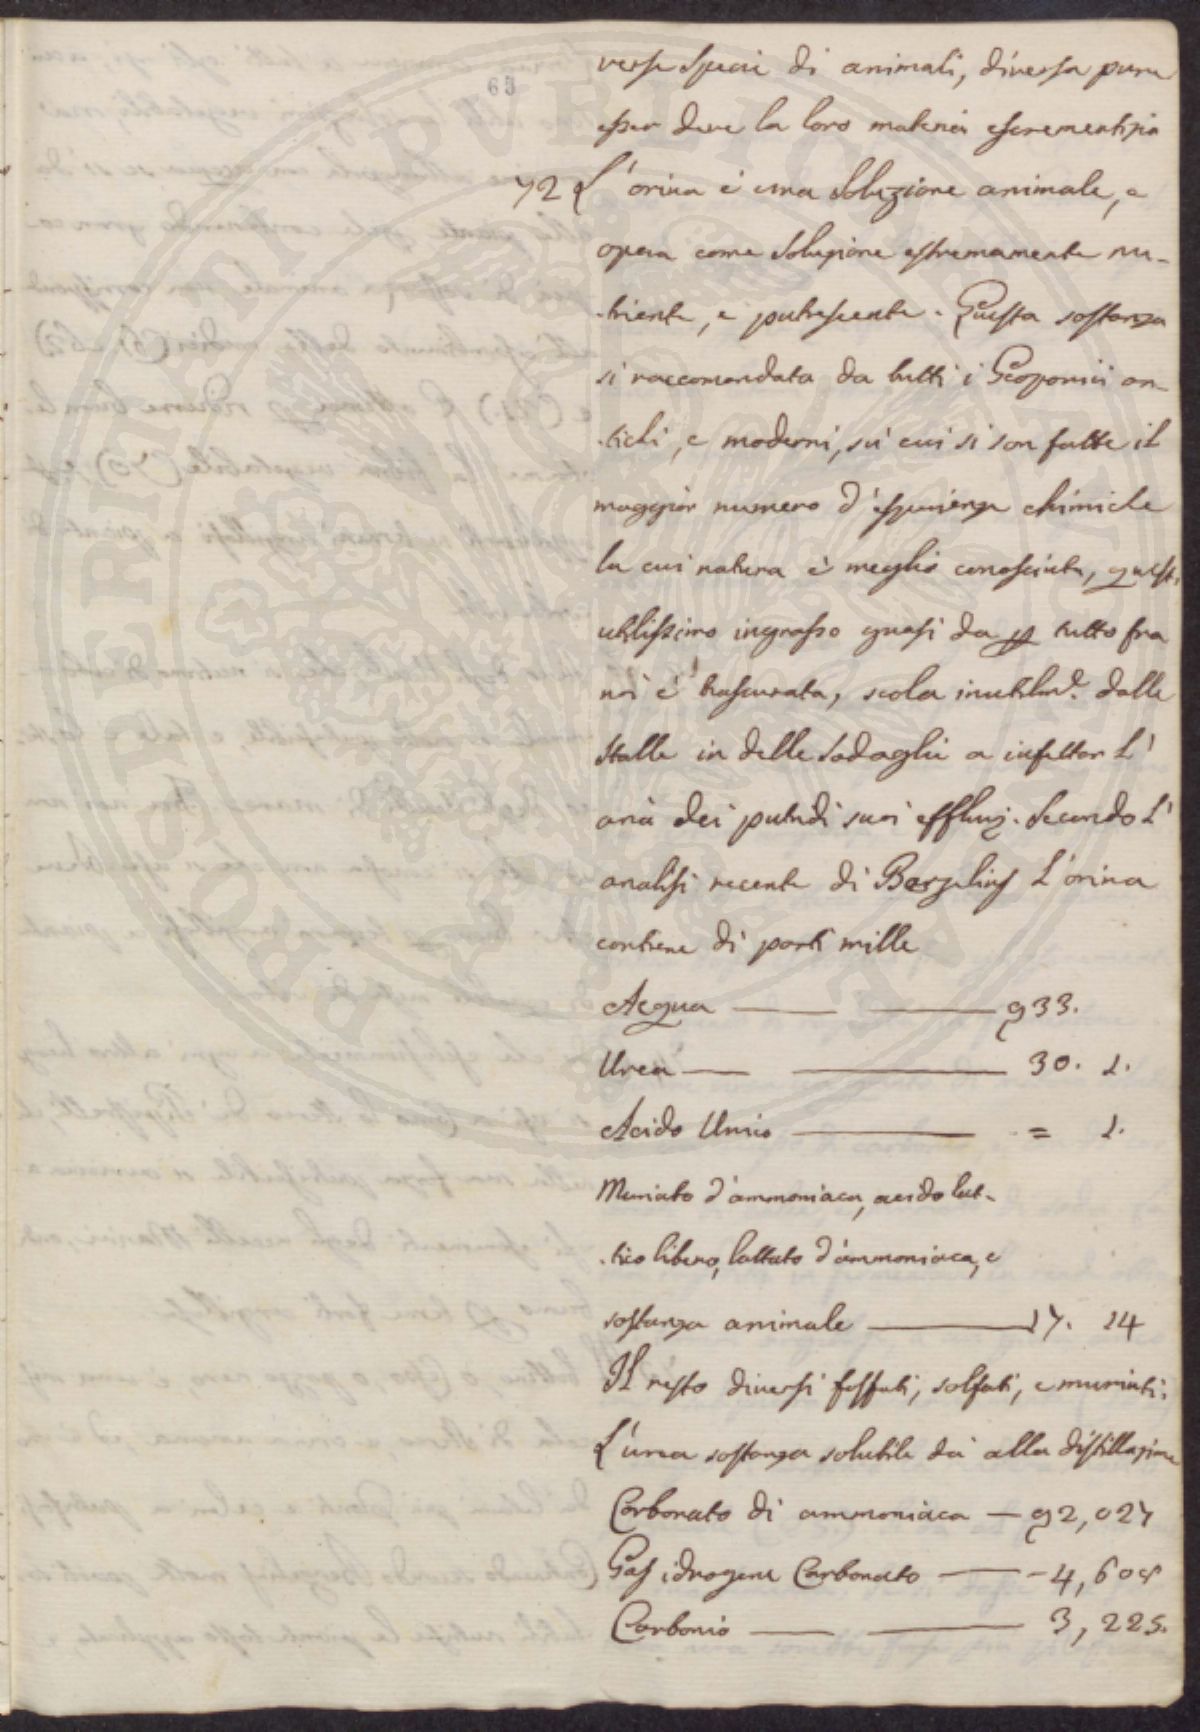 65
verse Specie di animali, diversa pure
esser deve la loro materia escrementizia
72 L'orina è una Soluzione animale, e
opera come Soluzione estremamente nu-
-triente, e putrescente. Questa sostanza
si raccomandata da tutti i Geoponici an-
-tichi, e moderni, sù cui si son fatte il
maggior numero d'esperienze chimiche
la cui natura è meglio conosciuta, quest'
utilissimo ingrasso quasi da p tutto fra
noi è trascurata, scola inutilmte. dalle
Stalle in delle Sodaglie a infettar L'
aria dei putridi suoi effluvj. Secondo L'
analisi recente di Berzelius L'orina
contiene di parti mille
Acqua — — 933.
Urea — — 30. 1.
Acido Urico — = 1.
Muriato d'ammoniaca, acido lat-
-tico libero, lattato d'ammoniaca, e
sostanza animale — 17. 14
Il resto diversi fosfati, solfati, e muriati.
L'urea sostanza solubile dà alla distillazione
Carbonato di ammoniaca — 92,027
Gas idrogene Carbonato — 4,608
Carbonio — — 3,225.
PROSPERITATI PUBLICAE AUGENDAE